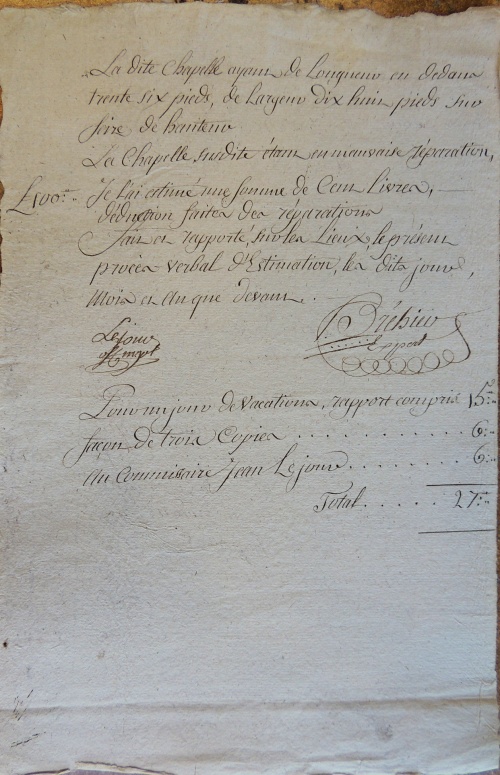 La dite Chapelle ayant de Longueur en dedans
trente six pieds, de Largeur dix huit pieds sur
seize de hauteur
La Chapelle susdite étant en mauvaise réparation,
£100:" Je L'ai estimé une somme de Cent Livres,
déduction faites des réparations
Fait et rapporté, sur les Lieux, le présent
procès verbal d'Estimation, les dits jours,
Mois et An que devant.
Le jour
off. mpal
Bréhier
Expert
Pour un jour de vacations, rapport compris 15:"
façon de trois Copies . . . . . . . . . . 6:"
Au Commissaire Jean Le jour . . . . . . . 6:"
Total . . . . . 27:"